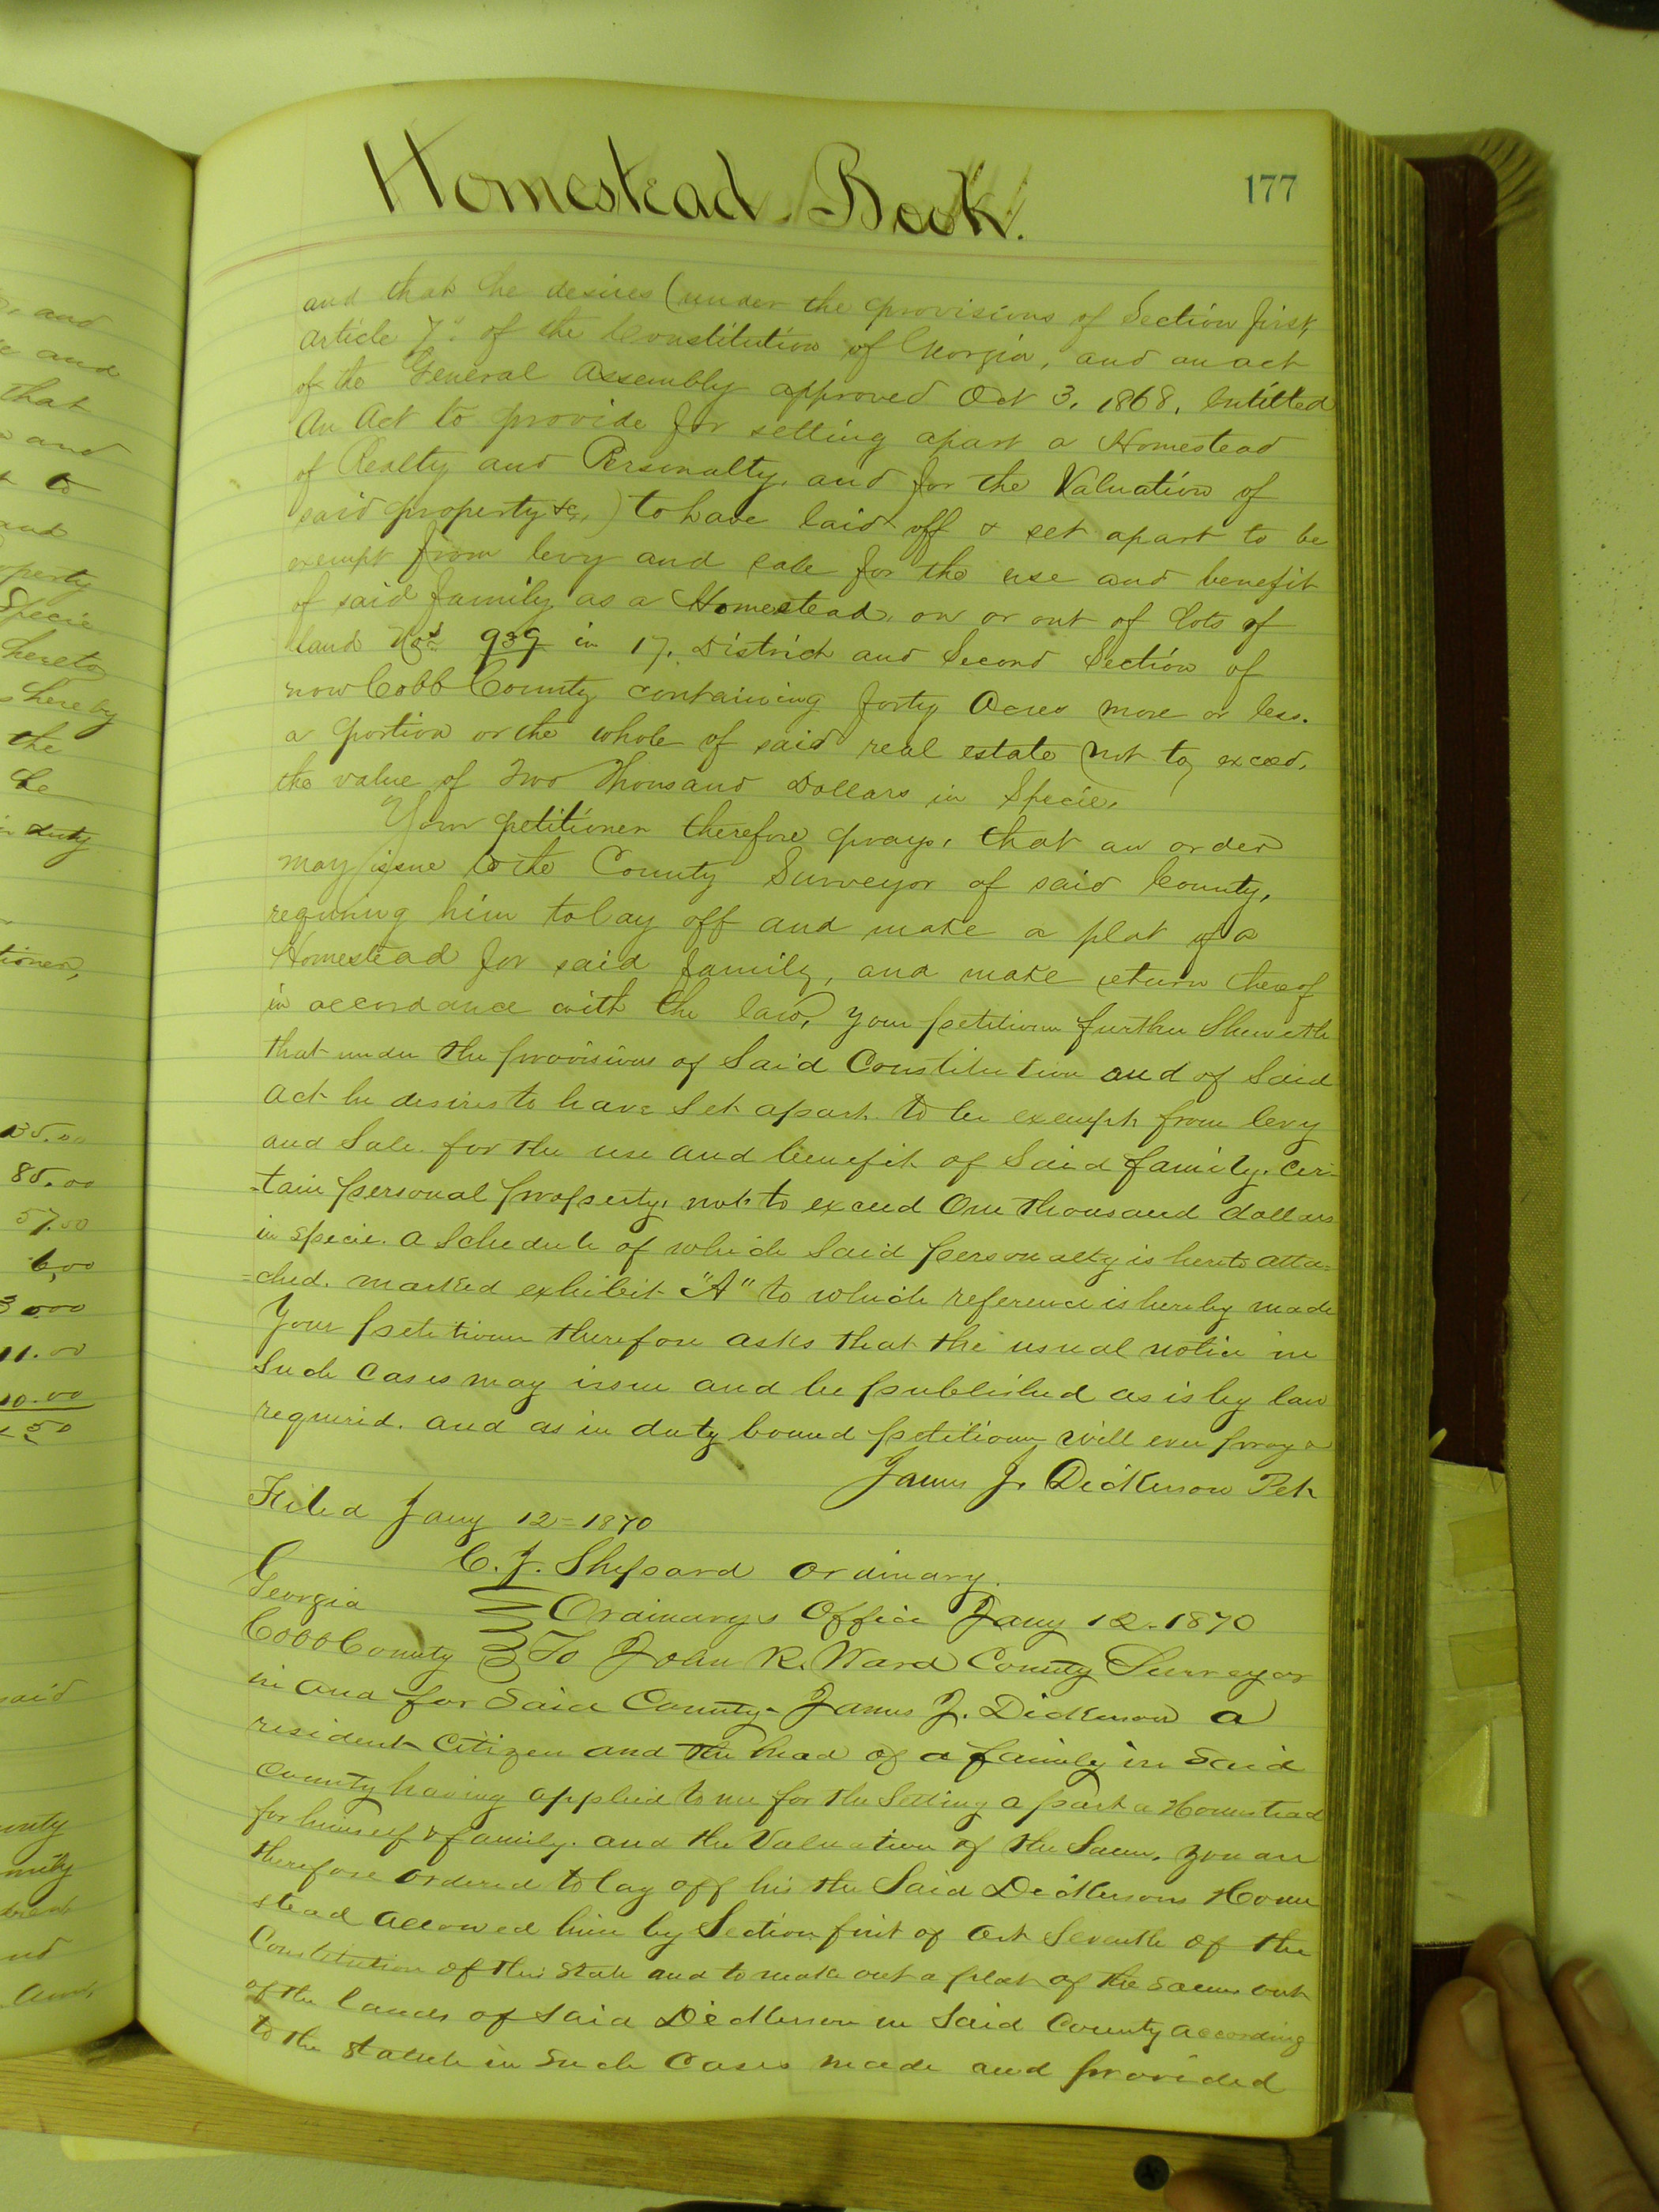 Homestead Book.
177
and that he desires (under the provisions of Section first,
article 7th of the Constitution of Georgia, and an act
of the General Assembly approved Oct 3, 1868, Entitled
An Act to provide for setting apart a Homestead
of Realty and Personalty, and for the Valuation of
said property &c,) to have laid off & set apart to be
exempt from levy and sale for the use and benefit
of said family as a Homestead, on or out of lots of
land Nos 939 in 17, District and Second Section of
now Cobb County containing forty Acres more or less.
a portion or the whole of said real estate not to exceed,
the value of Two Thousand Dollars in Specie,
Your petitioner therefore prays, that an order
may issue to the County Surveyor of said County,
requiring him to lay off and make a plat of a
Homestead for said family, and make return thereof
in accordance with the law, your petitioner further Sheweth
that under the provisions of Said Constitution and of Said
Act he desires to have Set apart to be exempt from levy
and Sale for the use and benefit of Said family. cer-
-tain personal property, not to exceed One thousand dollars
in specie. a Schedule of which Said personalty is hereto atta=
=ched. marked exhibit "A" to which reference is hereby made
Your petitioner therefore asks that the usual notice in
Such Cases may issue and be published as is by law
required. and as in duty bound petitioner will ever pray &
James J. Dickerson Pet
Filed Jany 12=1870
C. J. Shepard Ordinary.
Georgia Ordinarys Office Jany 12-1870
Cobb County To John R. Ward County Surveyor
in and for Said County- James J. Dickerson a
resident Citizen and the head of a family in Said
County having applied to me for the Setting apart a Homestead
for himself & family. and the Valuation of the Same. you are
therefore ordered to lay off his the Said Dickersons Home
stead allowed him by Section first of Art Seventh of the
Constitution of this State and to make out a plat of the same out
of the lands of Said Dickerson in Said County according
to the statute in Such Cases made and provided
and
and
that
and
to
and
property
Specie
hereto
hereby
the
be
in duty
tioner,
35.00
85.00
57.50
6,00
11.00
50
said
and